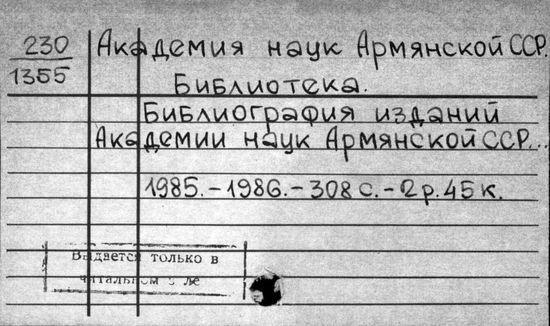 230
1355
Академия наук Армянской ССР.
Библиотека.
Библиография изданий
Академии наук Армянской ССР...
1985.-1986.-308 с.-2 р. 45 к.
Выдается только в
читальном зале